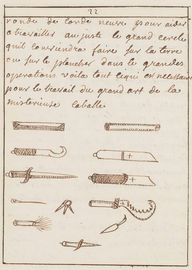 22
ronde de corde neuve pour aider
a travailler au juste le grand cercle
quil conviendra faire sur la terre
ou sur le plancher dans le grandes
operations voila tout ce qui est necessaire
pour le travail du grand art de la
misterieuse caballe